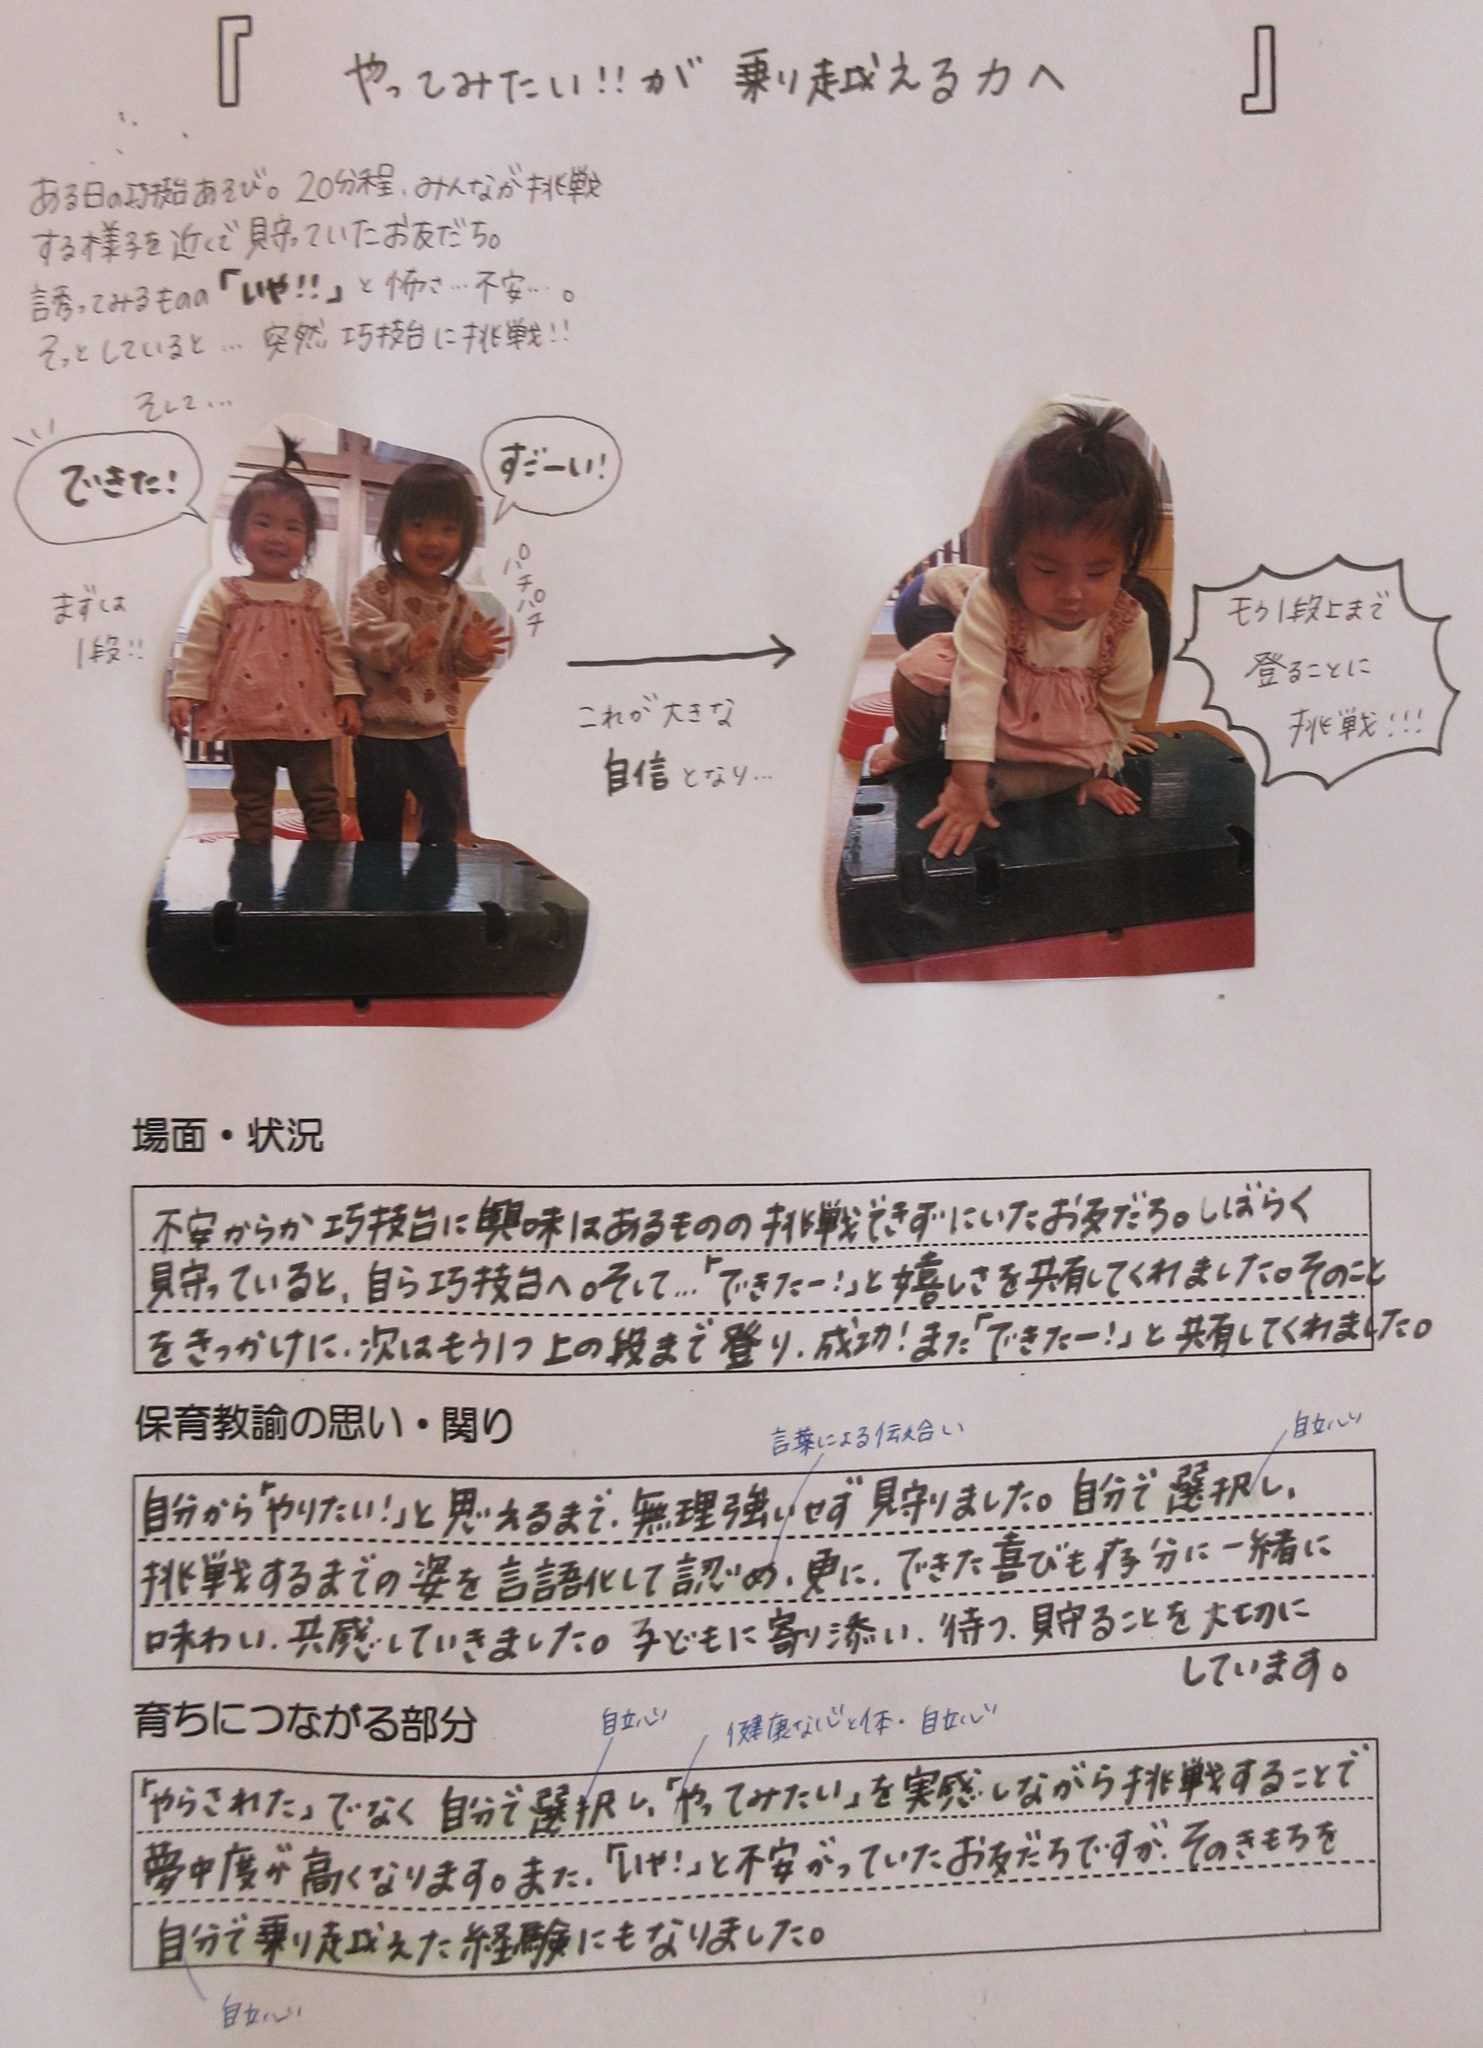 『 やってみたい!!が 乗り越える力へ 』
ある日の巧技台あそび。20分程、みんなが挑戦
する様子を近くで見守っていたお友だち。
誘ってみるものの「いや!!」と怖さ…不安…。
そっとしていると… 突然 巧技台に挑戦!!
そして…
できた!
すごーい!
パチパチ
まずは
1段!!
これが大きな
自信となり…
もう1段上まで
登ることに
挑戦!!!
場面・状況
不安からか巧技台に興味はあるものの挑戦できずにいたお友だち。しばらく
見守っていると、自ら巧技台へ。そして…「できたー!」と嬉しさを共有してくれました。そのこと
をきっかけに、次はもう1つ上の段まで登り、成功!また「できたー!」と共有してくれました。
保育教諭の思い・関り
言葉による伝え合い
自立心
自分から「やりたい!」と思えるまで、無理強いせず見守りました。自分で選択し、
挑戦するまでの姿を言語化して認め、更に、できた喜びも存分に一緒に
味わい、共感していきました。子どもに寄り添い、待つ、見守ることを大切に
しています。
育ちにつながる部分
自立心
健康な心と体・自立心
「やらされた」でなく自分で選択し、「やってみたい」を実感しながら挑戦することで
夢中度が高くなります。また、「いや!」と不安がっていたお友だちですが、そのきもちを
自分で乗り越えた経験にもなりました。
自立心